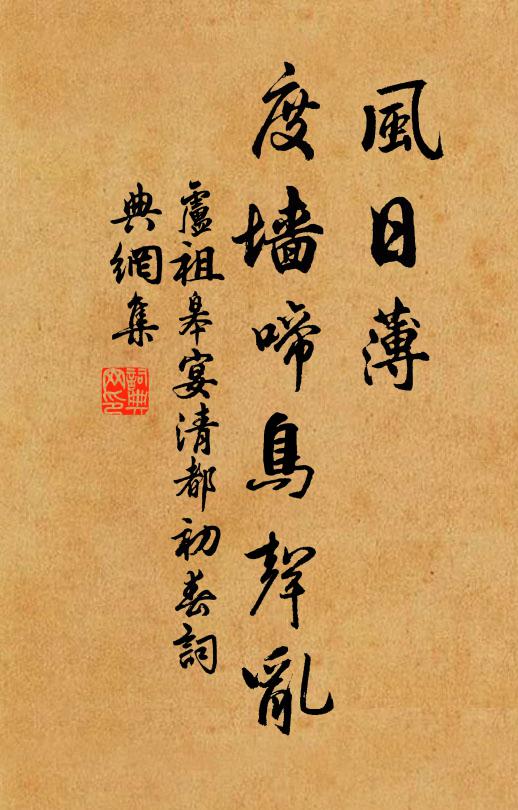 風日薄
度墙啼鳥聲亂
盧祖皋宴清都初春詞
典網集
詞典網印